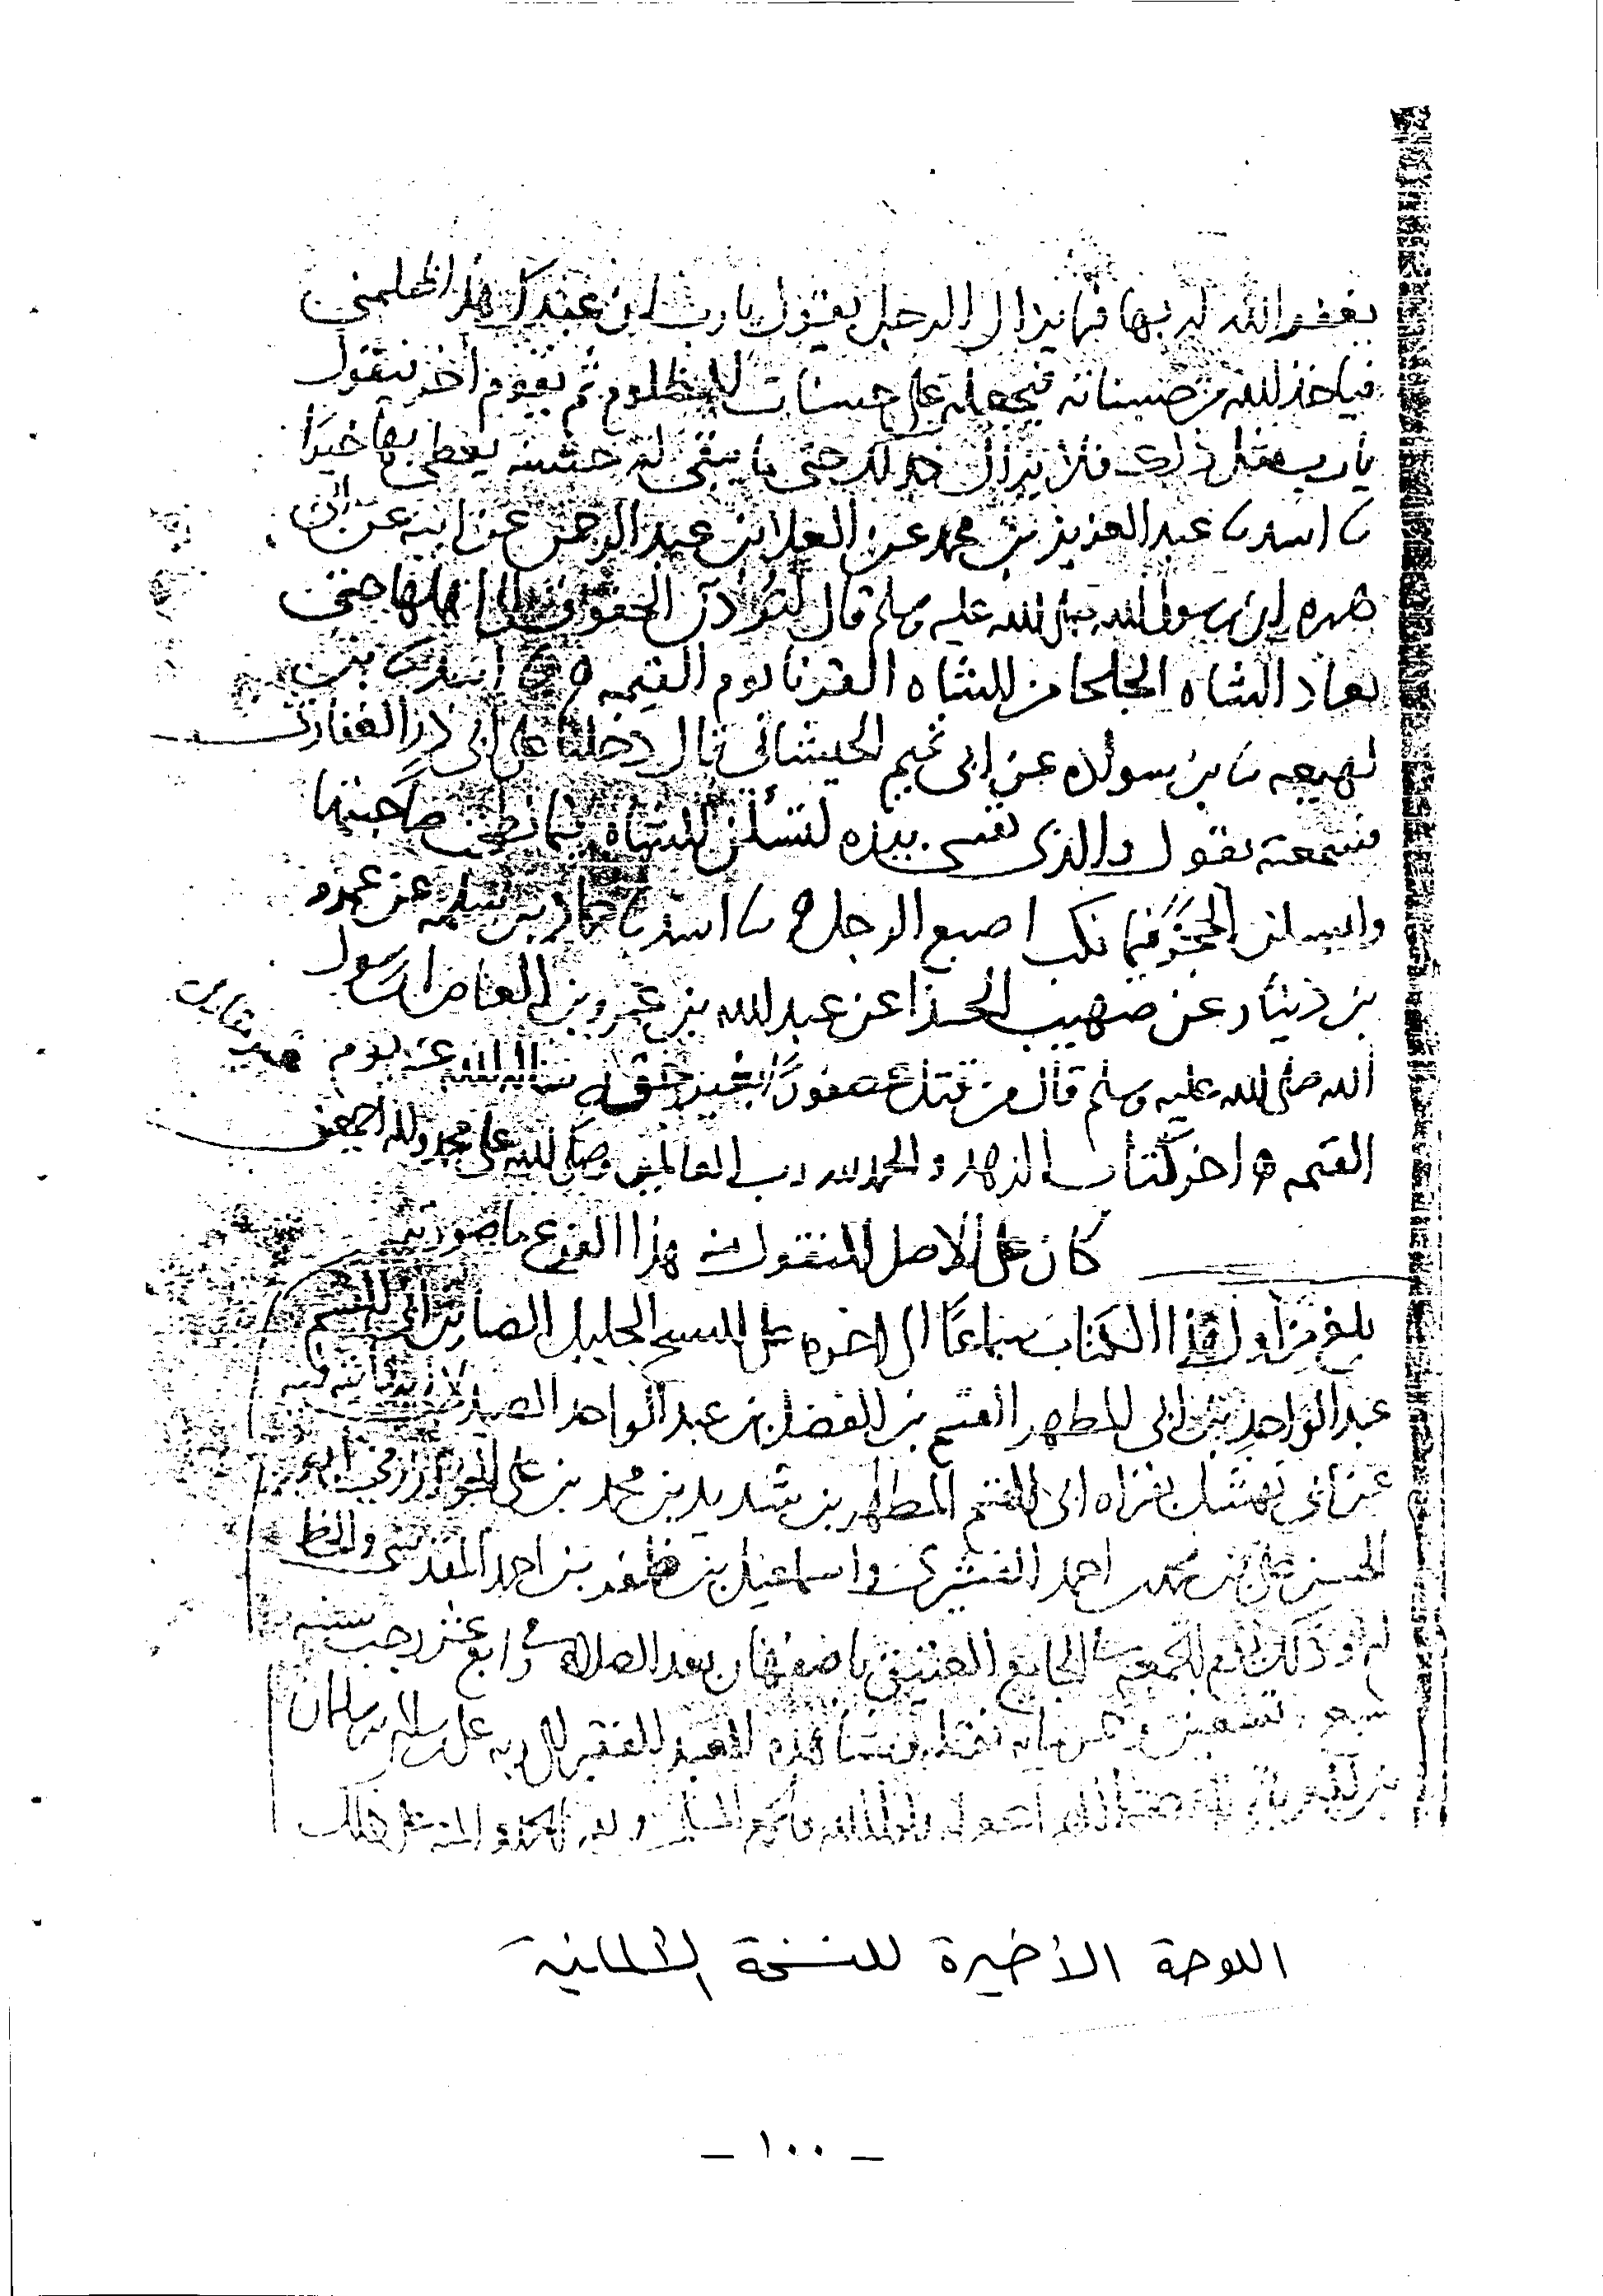 يغفر الله له بها فما يزال الرجل يقول يا رب إن عبدك هذا ظلمني
فياخذ الله من حسناته فيجعله على حسنات المظلوم ثم يقوم آخر فيقول
يا رب مثل ذلك فلا يزال كذلك حتى ما يبقى له حسنة يعطى بها خيرا
نا اسد نا عبد العزيز بن محمد عن العلا بن عبد الرحمن عن ابيه عن ابي
هريره ان رسول الله صلى الله عليه وسلم قال لتؤدن الحقوق الى اهلها حتى
يعاد الشاه الجلحا من الشاه القرنا يوم القيمه ه نا اسد نا بن
لهيعه نا بن سواده عن ابي تميم الجيشاني قال دخلنا على ابي ذر الغفاري
فسمعته يقول والذي نفسي بيده لتسئلن الشاه فيما نطحت صاحبتها
وليسلن الحجر فيما نكب اصبع الرجل ه نا اسد نا حماد بن سلمه عن عمرو
بن دينار عن صهيب الحذا عن عبد الله بن عمرو بن العاص ان رسول
الله صلى الله عليه وسلم قال من قتل عصفورا بغير حق ساله الله عنه يوم
القيمه ه اخر كتاب الزهد والحمد لله رب العالمين وصلى الله على محمد واله اجمعين
كان على الاصل المنقول منه هذا الفرع ما صورته
بلغ من اول هذا الكتاب سماعا الى اخره على الشيخ الجليل الصاين ابي القسم
عبد الواحد بن ابي المطهر القسم بن الفضل بن عبد الواحد الصيدلاني
عن ابي نهشل بقراه ابي القسم المطهر بن شديد بن محمد بن علي الخوارزمي ابو
الحسن علي بن محمد احمد القشيري واسماعيل بن ظفر بن احمد المقدسي والخط
له وذلك يوم الجمعه بالجامع العتيق باصفهان بعد الصلاه في رابع عشر رجب سنه
سبع وتسعين وخمس مايه نقله العبد الفقير الى ربه
ولله الحمد والمنه على ذلك
اللوحة الأخيرة للنسخة الألمانية
– ١٠٠ –